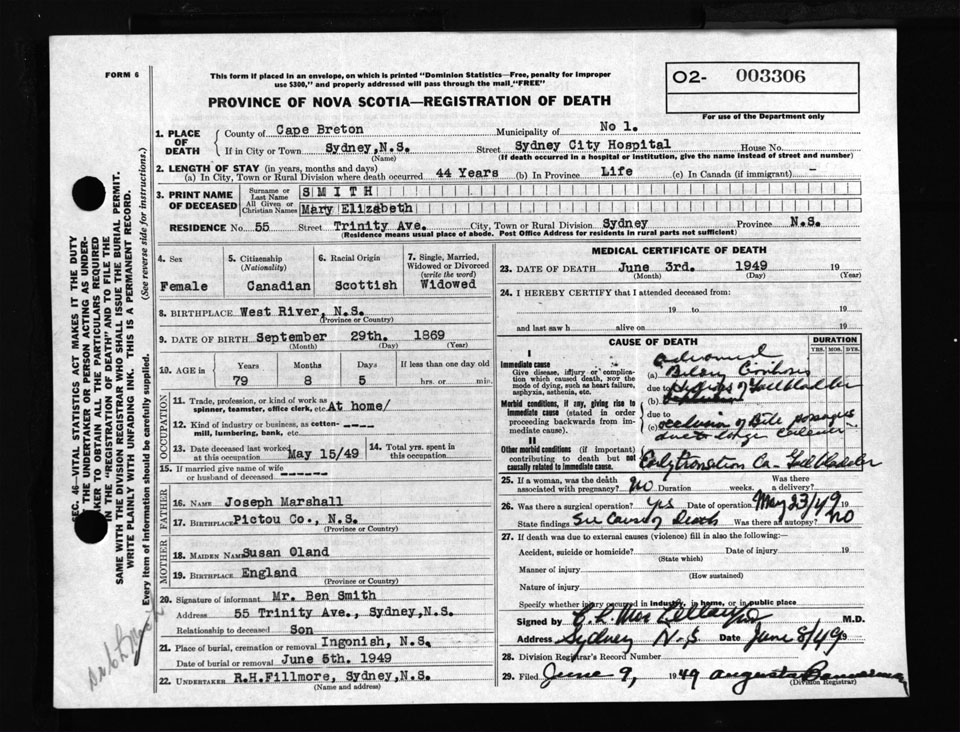 FORM 6
This form if placed in an envelope, on which is printed "Dominion Statistics—Free, penalty for improper
use $300," and properly addressed will pass through the mail "FREE"
O2- 003306
For use of the Department only
PROVINCE OF NOVA SCOTIA—REGISTRATION OF DEATH
SEC. 46—VITAL STATISTICS ACT MAKES IT THE DUTY
OF THE UNDERTAKER OR PERSON ACTING AS UNDER-
TAKER TO OBTAIN ALL THE PARTICULARS REQUIRED
IN THE "REGISTRATION OF DEATH" AND TO FILE THE
SAME WITH THE DIVISION REGISTRAR WHO SHALL ISSUE THE BURIAL PERMIT.
WRITE PLAINLY WITH UNFADING INK. THIS IS A PERMANENT RECORD.
Every item of information should be carefully supplied. (See reverse side for instructions.)
1. PLACE OF DEATH
County of Cape Breton Municipality of No 1.
If in City or Town Sydney, N.S. Street Sydney City Hospital House No.
(Name) (If death occurred in a hospital or institution, give the name instead of street and number)
2. LENGTH OF STAY (in years, months and days)
(a) In City, Town or Rural Division where death occurred 44 Years (b) In Province Life (c) In Canada (if immigrant) -
3. PRINT NAME OF DECEASED
Surname or Last Name SMITH
All Given or Christian Names Mary Elizabeth
RESIDENCE No. 55 Street Trinity Ave. City, Town or Rural Division Sydney Province N.S.
(Residence means usual place of abode. Post Office Address for residents in rural parts not sufficient)
4. Sex Female
5. Citizenship (Nationality) Canadian
6. Racial Origin Scottish
7. Single, Married, Widowed or Divorced (write the word) Widowed
8. BIRTHPLACE West River, N.S.
(Province or Country)
9. DATE OF BIRTH September 29th. 1869
(Month) (Day) (Year)
10. AGE in Years Months Days If less than one day old
79 8 5 hrs. or min.
OCCUPATION
11. Trade, profession, or kind of work as
spinner, teamster, office clerk, etc. At home/
12. Kind of industry or business, as cotton-
mill, lumbering, bank, etc. ----
13. Date deceased last worked at this occupation May 15/49
14. Total yrs. spent in this occupation
15. If married give name of wife
or husband of deceased -----
FATHER
16. NAME Joseph Marshall
17. BIRTHPLACE Pictou Co., N.S.
MOTHER
18. MAIDEN NAME Susan Oland
19. BIRTHPLACE England
(Province or Country)
20. Signature of informant Mr. Ben Smith
Address 55 Trinity Ave., Sydney, N.S.
Relationship to deceased Son
21. Place of burial, cremation or removal Ingonish, N.S.
Date of burial or removal June 5th. 1949
22. UNDERTAKER R.H.Fillmore, Sydney, N.S.
(Name and address)
MEDICAL CERTIFICATE OF DEATH
23. DATE OF DEATH June 3rd. 1949 19
(Month) (Day) (Year)
24. I HEREBY CERTIFY that I attended deceased from:
19 to 19
and last saw h alive on 19
CAUSE OF DEATH
DURATION
YRS. MOS. DYS.
I
Immediate cause
Give disease, injury or complica-
tion which caused death, NOT the
mode of dying, such as heart failure,
asphyxia, asthenia, etc.
Advanced
(a) Biliary Cirrhosis
due to
(b) of Gallbladder
Morbid conditions, if any, giving rise to
immediate cause (stated in order
proceeding backwards from im-
mediate cause).
due to
(c) occlusion of Bile passages
due to large
II
Other morbid conditions (if important)
contributing to death but not
causally related to immediate cause.
Early transition Ca- Gallbladder
25. If a woman, was the death
associated with pregnancy? No Duration weeks. Was there a delivery?
26. Was there a surgical operation? Yes Date of operation May 23/49 19
State findings See Cause of Death Was there an autopsy? No
27. If death was due to external causes (violence) fill in also the following:—
Accident, suicide or homicide? Date of injury 19
(State which)
Manner of injury
(How sustained)
Nature of injury
Specify whether injury occurred in industry, in home, or in public place
Signed by M.D.
Address Sydney N-S Date June 8/49
28. Division Registrar's Record Number
29. Filed June 9, 1949 Augusta
(Division Registrar)